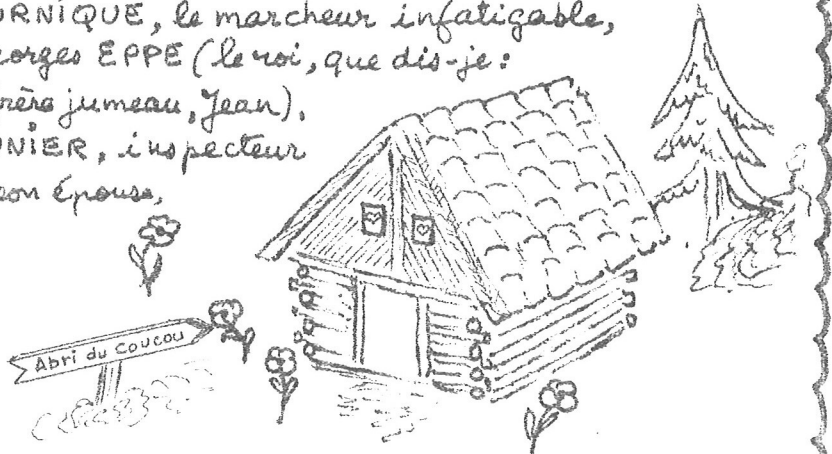 URNIQUE, le marcheur infatigable,
eorges EPPE (le roi, que dis-je :
frère jumeau, Jean),
UNIER, inspecteur
son épouse,
Abri du Coucou